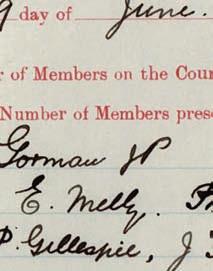 9 day of June.
r of Members on the Cour
Number of Members prese
Gorman JP
E. Melly.
P. Gillespie, J